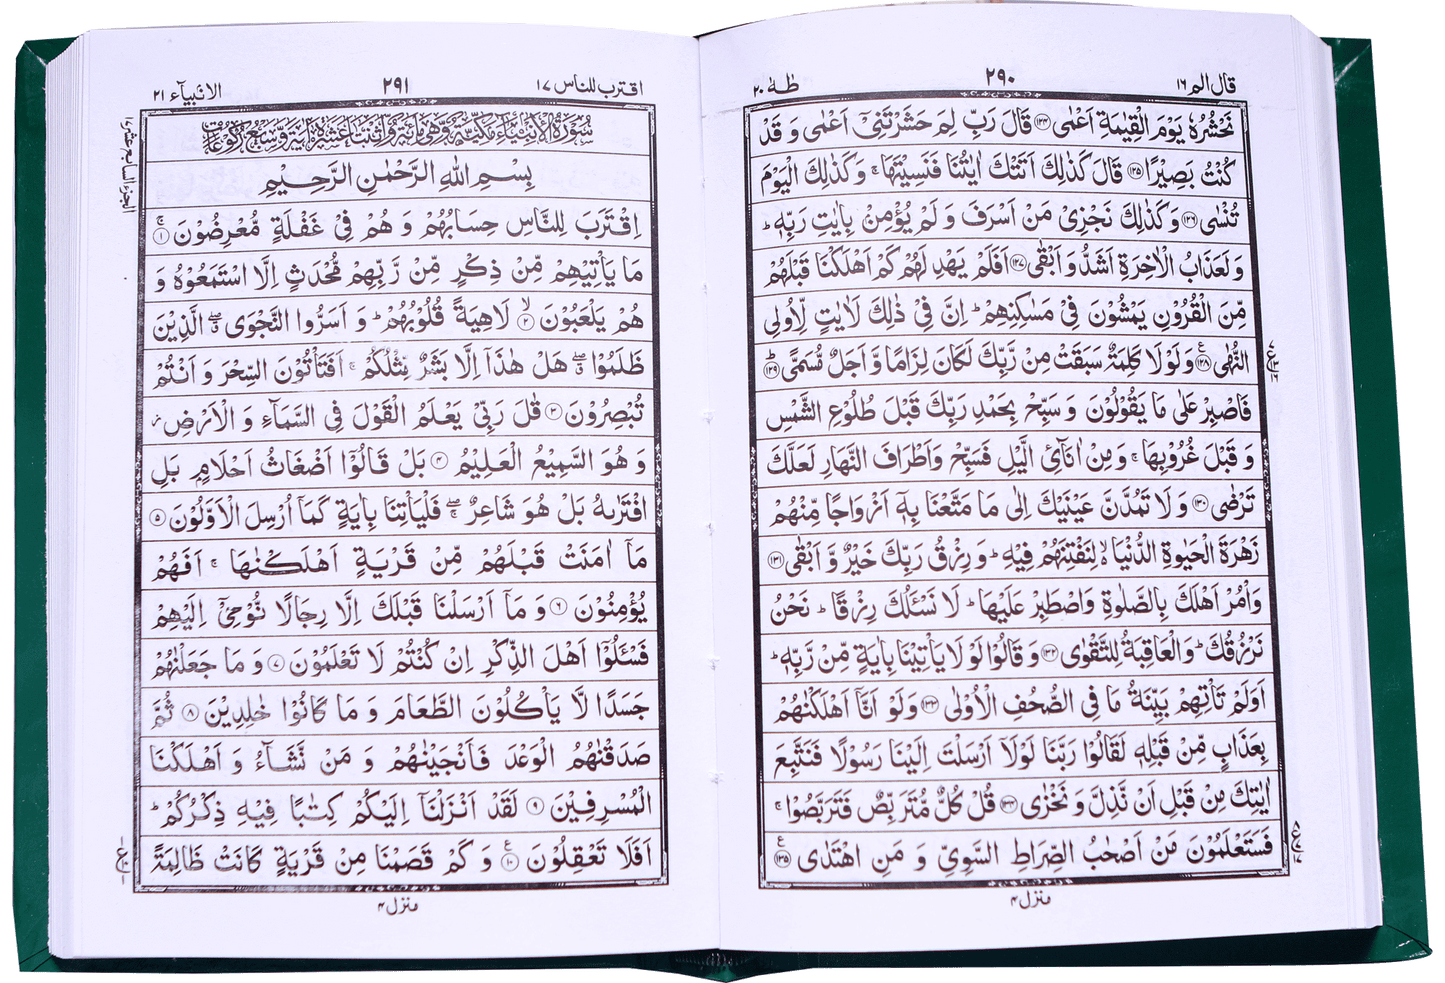 قال الم ١٦
٢٩٠
طٰهٰ ٢٠
نَحْشُرُهٗ يَوْمَ الْقِيٰمَةِ اَعْمٰى ١٢٤ قَالَ رَبِّ لِمَ حَشَرْتَنِيْٓ اَعْمٰى وَ قَدْ
كُنْتُ بَصِيْرًا ١٢٥ قَالَ كَذٰلِكَ اَتَتْكَ اٰيٰتُنَا فَنَسِيْتَهَا ۚ وَ كَذٰلِكَ الْيَوْمَ
تُنْسٰى ١٢٦ وَ كَذٰلِكَ نَجْزِيْ مَنْ اَسْرَفَ وَ لَمْ يُؤْمِنْۢ بِاٰيٰتِ رَبِّهٖ ؕ
وَ لَعَذَابُ الْاٰخِرَةِ اَشَدُّ وَ اَبْقٰى ١٢٧ اَفَلَمْ يَهْدِ لَهُمْ كَمْ اَهْلَكْنَا قَبْلَهُمْ
مِّنَ الْقُرُوْنِ يَمْشُوْنَ فِيْ مَسٰكِنِهِمْ ؕ اِنَّ فِيْ ذٰلِكَ لَاٰيٰتٍ لِّاُولِي
النُّهٰى ١٢٨ وَ لَوْ لَا كَلِمَةٌ سَبَقَتْ مِنْ رَّبِّكَ لَكَانَ لِزَامًا وَّ اَجَلٌ مُّسَمًّى ١٢٩
فَاصْبِرْ عَلٰى مَا يَقُوْلُوْنَ وَ سَبِّحْ بِحَمْدِ رَبِّكَ قَبْلَ طُلُوْعِ الشَّمْسِ
وَ قَبْلَ غُرُوْبِهَا ۚ وَ مِنْ اٰنَآئِ الَّيْلِ فَسَبِّحْ وَ اَطْرَافَ النَّهَارِ لَعَلَّكَ
تَرْضٰى ١٣٠ وَ لَا تَمُدَّنَّ عَيْنَيْكَ اِلٰى مَا مَتَّعْنَا بِهٖٓ اَزْوَاجًا مِّنْهُمْ
زَهْرَةَ الْحَيٰوةِ الدُّنْيَا ۙ لِنَفْتِنَهُمْ فِيْهِ ؕ وَ رِزْقُ رَبِّكَ خَيْرٌ وَّ اَبْقٰى ١٣١
وَ اْمُرْ اَهْلَكَ بِالصَّلٰوةِ وَ اصْطَبِرْ عَلَيْهَا ؕ لَا نَسْـَٔلُكَ رِزْقًا ؕ نَحْنُ
نَرْزُقُكَ ؕ وَ الْعَاقِبَةُ لِلتَّقْوٰى ١٣٢ وَ قَالُوْا لَوْ لَا يَاْتِيْنَا بِاٰيَةٍ مِّنْ رَّبِّهٖ ؕ
اَوَ لَمْ تَاْتِهِمْ بَيِّنَةُ مَا فِي الصُّحُفِ الْاُوْلٰى ١٣٣ وَ لَوْ اَنَّآ اَهْلَكْنٰهُمْ
بِعَذَابٍ مِّنْ قَبْلِهٖ لَقَالُوْا رَبَّنَا لَوْ لَآ اَرْسَلْتَ اِلَيْنَا رَسُوْلًا فَنَتَّبِعَ
اٰيٰتِكَ مِنْ قَبْلِ اَنْ نَّذِلَّ وَ نَخْزٰى ١٣٤ قُلْ كُلٌّ مُّتَرَبِّصٌ فَتَرَبَّصُوْا ۚ
فَسَتَعْلَمُوْنَ مَنْ اَصْحٰبُ الصِّرَاطِ السَّوِيِّ وَ مَنِ اهْتَدٰى ١٣٥
منزل ٤
اقترب للناس ١٧
٢٩١
الانبيآء ٢١
سُوْرَةُ الْاَنْۢبِيَآءِ مَكِّيَّةٌ وَّهِيَ مِائَةٌ وَّاثْنَتَا عَشْرَةَ اٰيَةً وَّسَبْعُ رُكُوْعَاتٍ
بِسْمِ اللّٰهِ الرَّحْمٰنِ الرَّحِيْمِ
اِقْتَرَبَ لِلنَّاسِ حِسَابُهُمْ وَ هُمْ فِيْ غَفْلَةٍ مُّعْرِضُوْنَ ۚ ١
مَا يَاْتِيْهِمْ مِّنْ ذِكْرٍ مِّنْ رَّبِّهِمْ مُّحْدَثٍ اِلَّا اسْتَمَعُوْهُ وَ
هُمْ يَلْعَبُوْنَ ۙ ٢ لَاهِيَةً قُلُوْبُهُمْ ؕ وَ اَسَرُّوا النَّجْوَى ۖۗ الَّذِيْنَ
ظَلَمُوْا ۖۗ هَلْ هٰذَآ اِلَّا بَشَرٌ مِّثْلُكُمْ ۚ اَفَتَاْتُوْنَ السِّحْرَ وَ اَنْتُمْ
تُبْصِرُوْنَ ٣ قٰلَ رَبِّيْ يَعْلَمُ الْقَوْلَ فِي السَّمَآءِ وَ الْاَرْضِ ؗ
وَ هُوَ السَّمِيْعُ الْعَلِيْمُ ٤ بَلْ قَالُوْٓا اَضْغَاثُ اَحْلَامٍۭ بَلِ
افْتَرٰىهُ بَلْ هُوَ شَاعِرٌ ۖۚ فَلْيَاْتِنَا بِاٰيَةٍ كَمَآ اُرْسِلَ الْاَوَّلُوْنَ ٥
مَآ اٰمَنَتْ قَبْلَهُمْ مِّنْ قَرْيَةٍ اَهْلَكْنٰهَا ۚ اَفَهُمْ
يُؤْمِنُوْنَ ٦ وَ مَآ اَرْسَلْنَا قَبْلَكَ اِلَّا رِجَالًا نُّوْحِيْٓ اِلَيْهِمْ
فَسْـَٔلُوْٓا اَهْلَ الذِّكْرِ اِنْ كُنْتُمْ لَا تَعْلَمُوْنَ ٧ وَ مَا جَعَلْنٰهُمْ
جَسَدًا لَّا يَاْكُلُوْنَ الطَّعَامَ وَ مَا كَانُوْا خٰلِدِيْنَ ٨ ثُمَّ
صَدَقْنٰهُمُ الْوَعْدَ فَاَنْجَيْنٰهُمْ وَ مَنْ نَّشَآءُ وَ اَهْلَكْنَا
الْمُسْرِفِيْنَ ٩ لَقَدْ اَنْزَلْنَآ اِلَيْكُمْ كِتٰبًا فِيْهِ ذِكْرُكُمْ ؕ
اَفَلَا تَعْقِلُوْنَ ١٠ وَ كَمْ قَصَمْنَا مِنْ قَرْيَةٍ كَانَتْ ظَالِمَةً
منزل ٤
الجزء السابع عشر ١٧